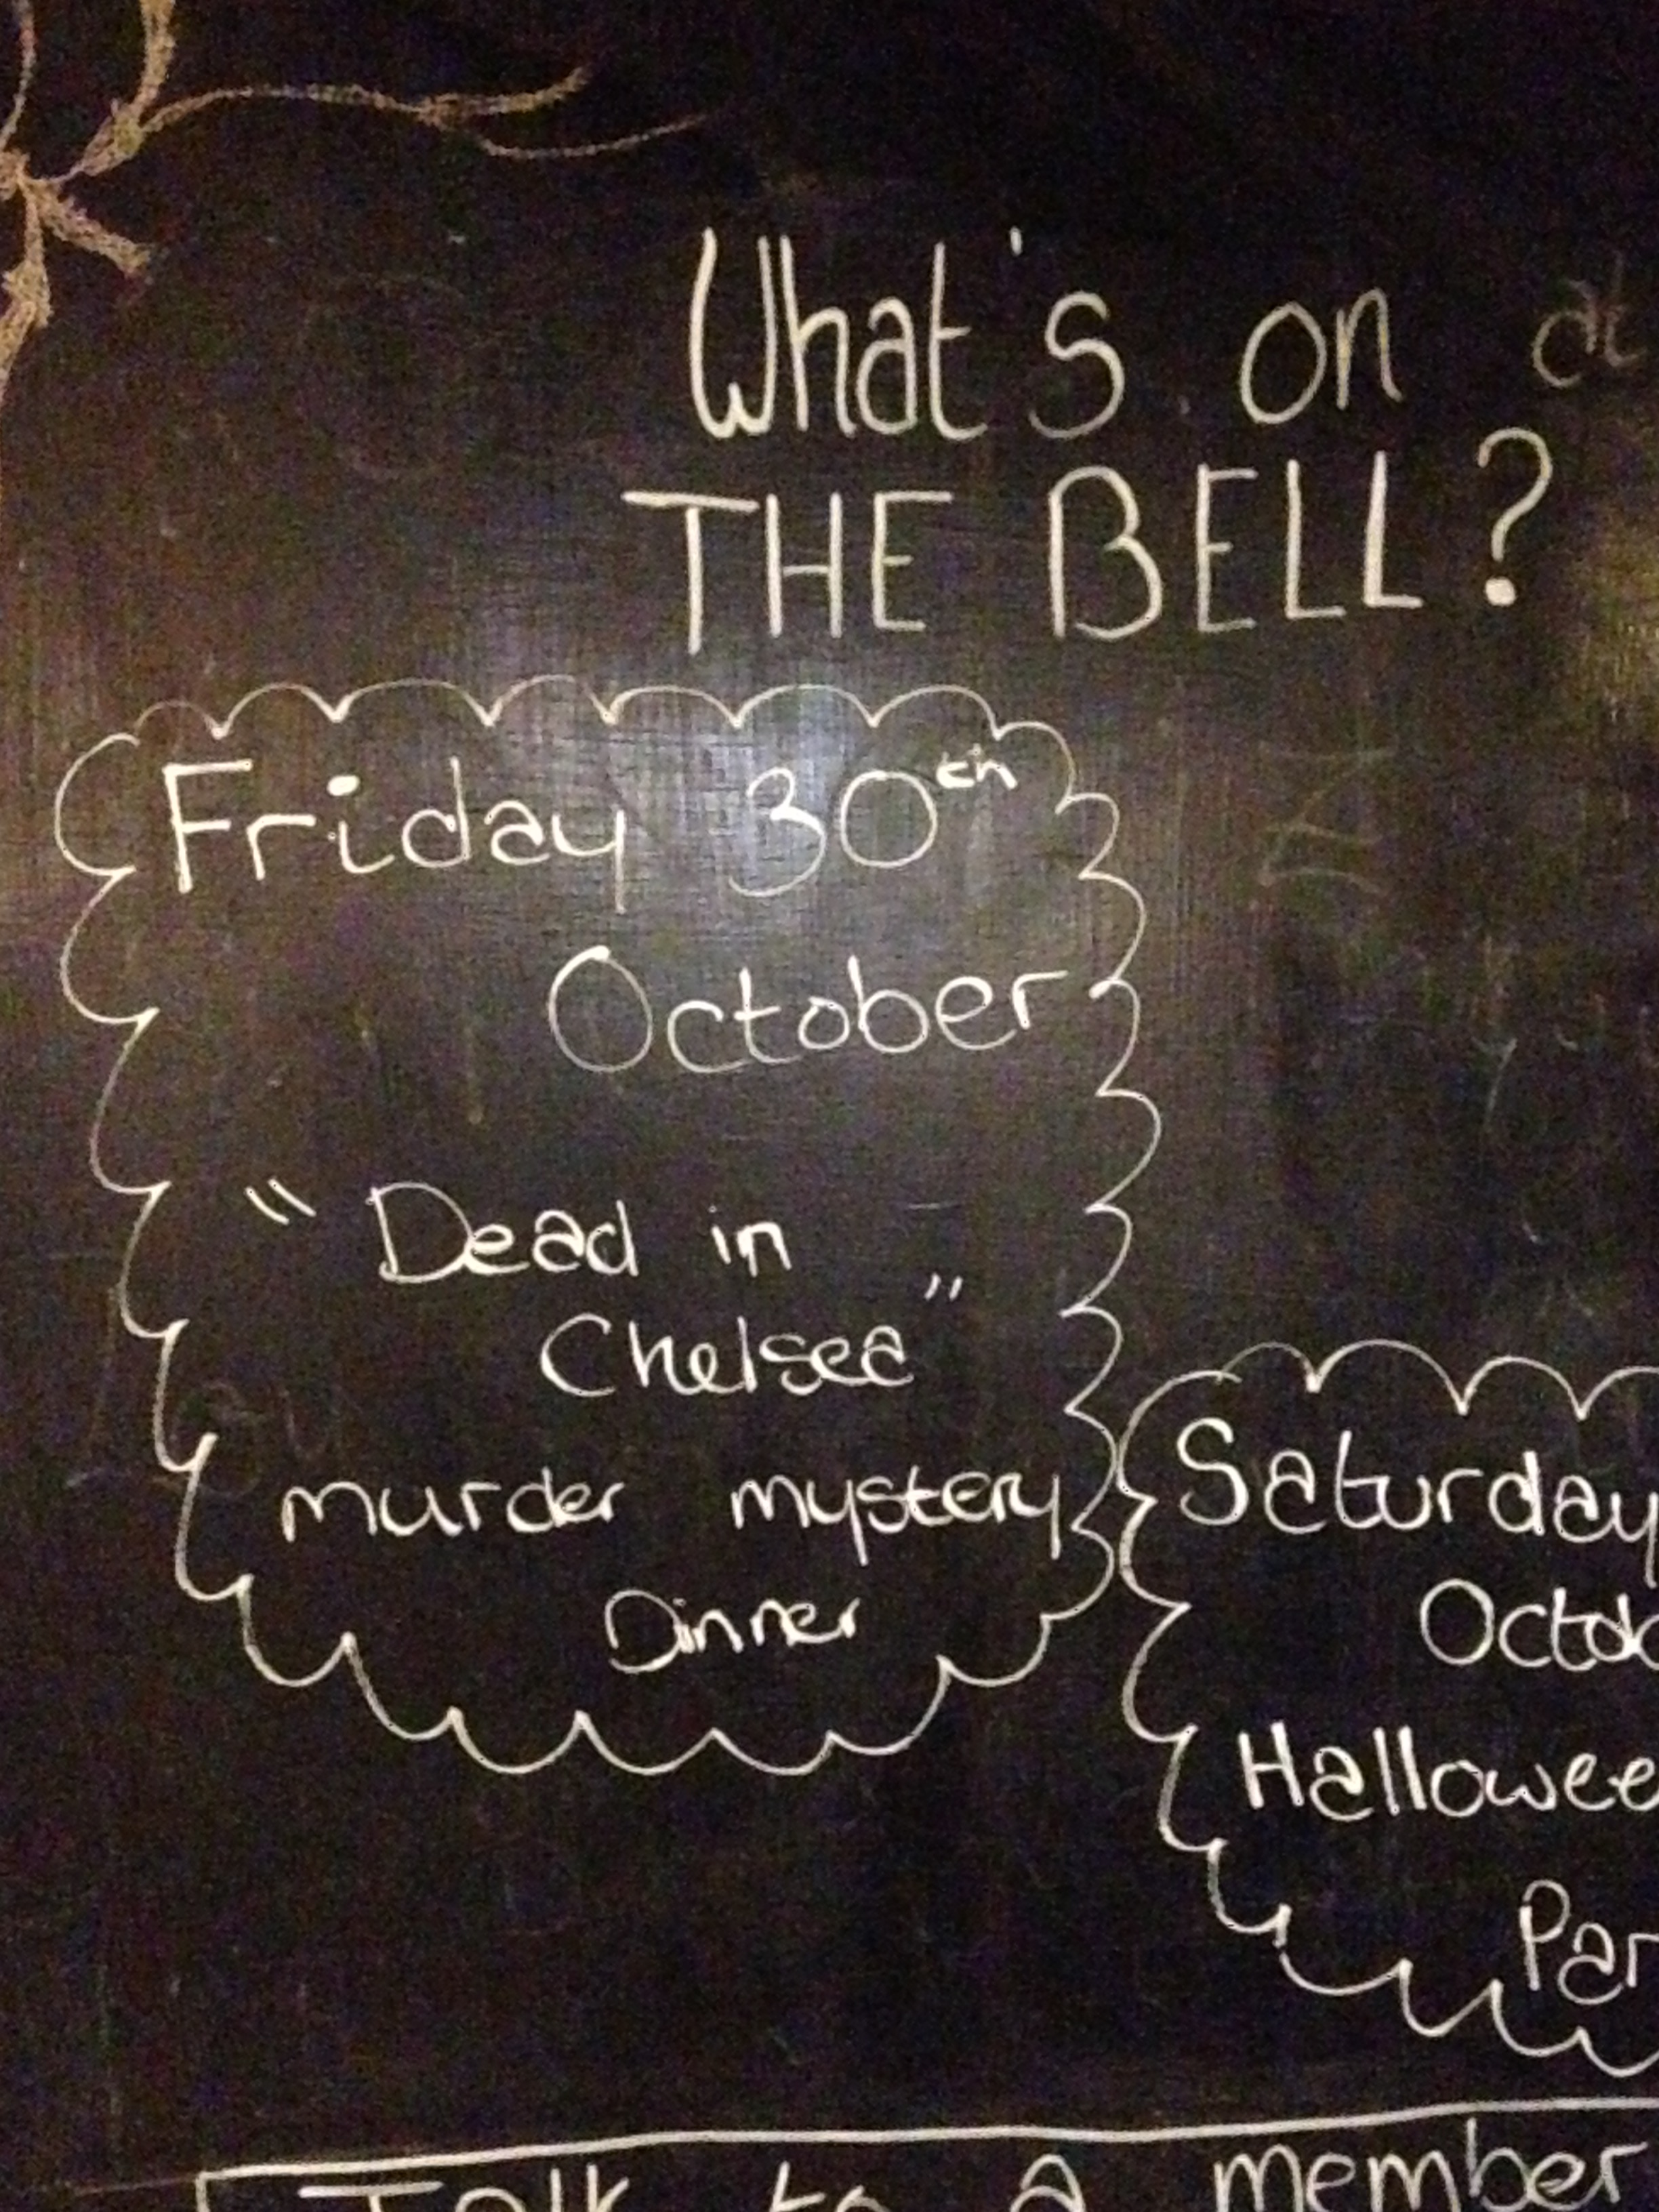 What's on at
THE BELL?
Friday 30th
October
"Dead in
Chelsea"
murder mystery
Dinner
Saturday
Octob
Hallowee
Par
Talk to a member